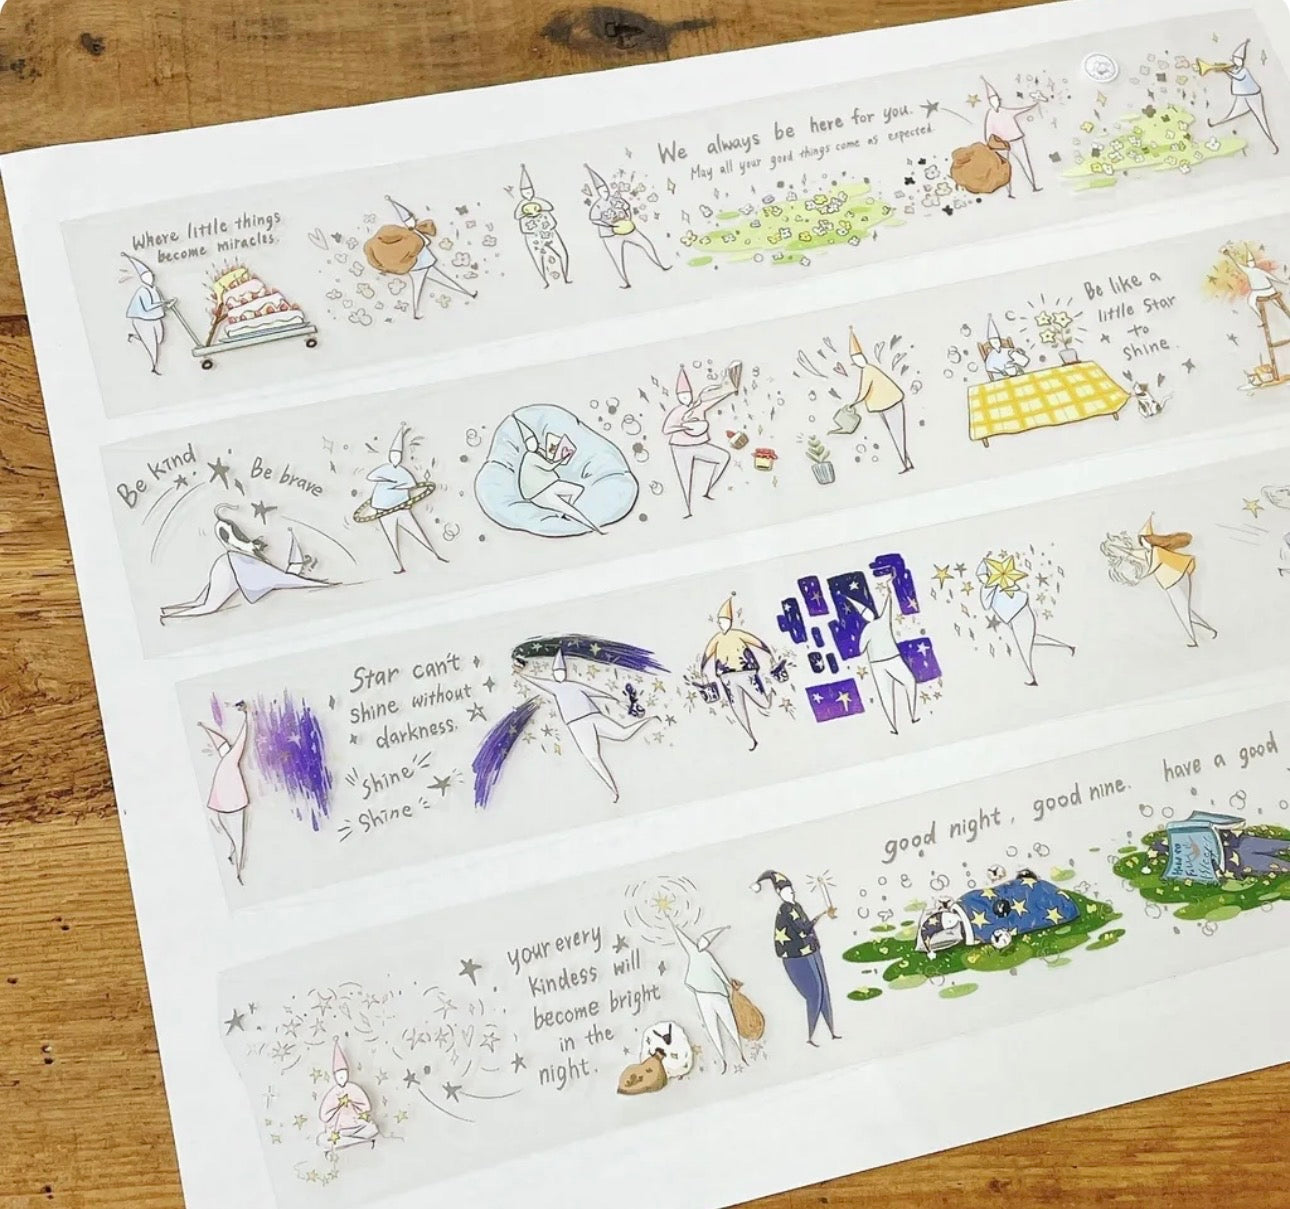 Where little things
become miracles.
We always be here for you.
May all your good things come as expected.
Be kind
Be brave
Be like a
little star
to
shine.
Star can't
shine without
darkness.
Shine
Shine
good night, good nine. have a good
your every
kindess will
become bright
in the
night.